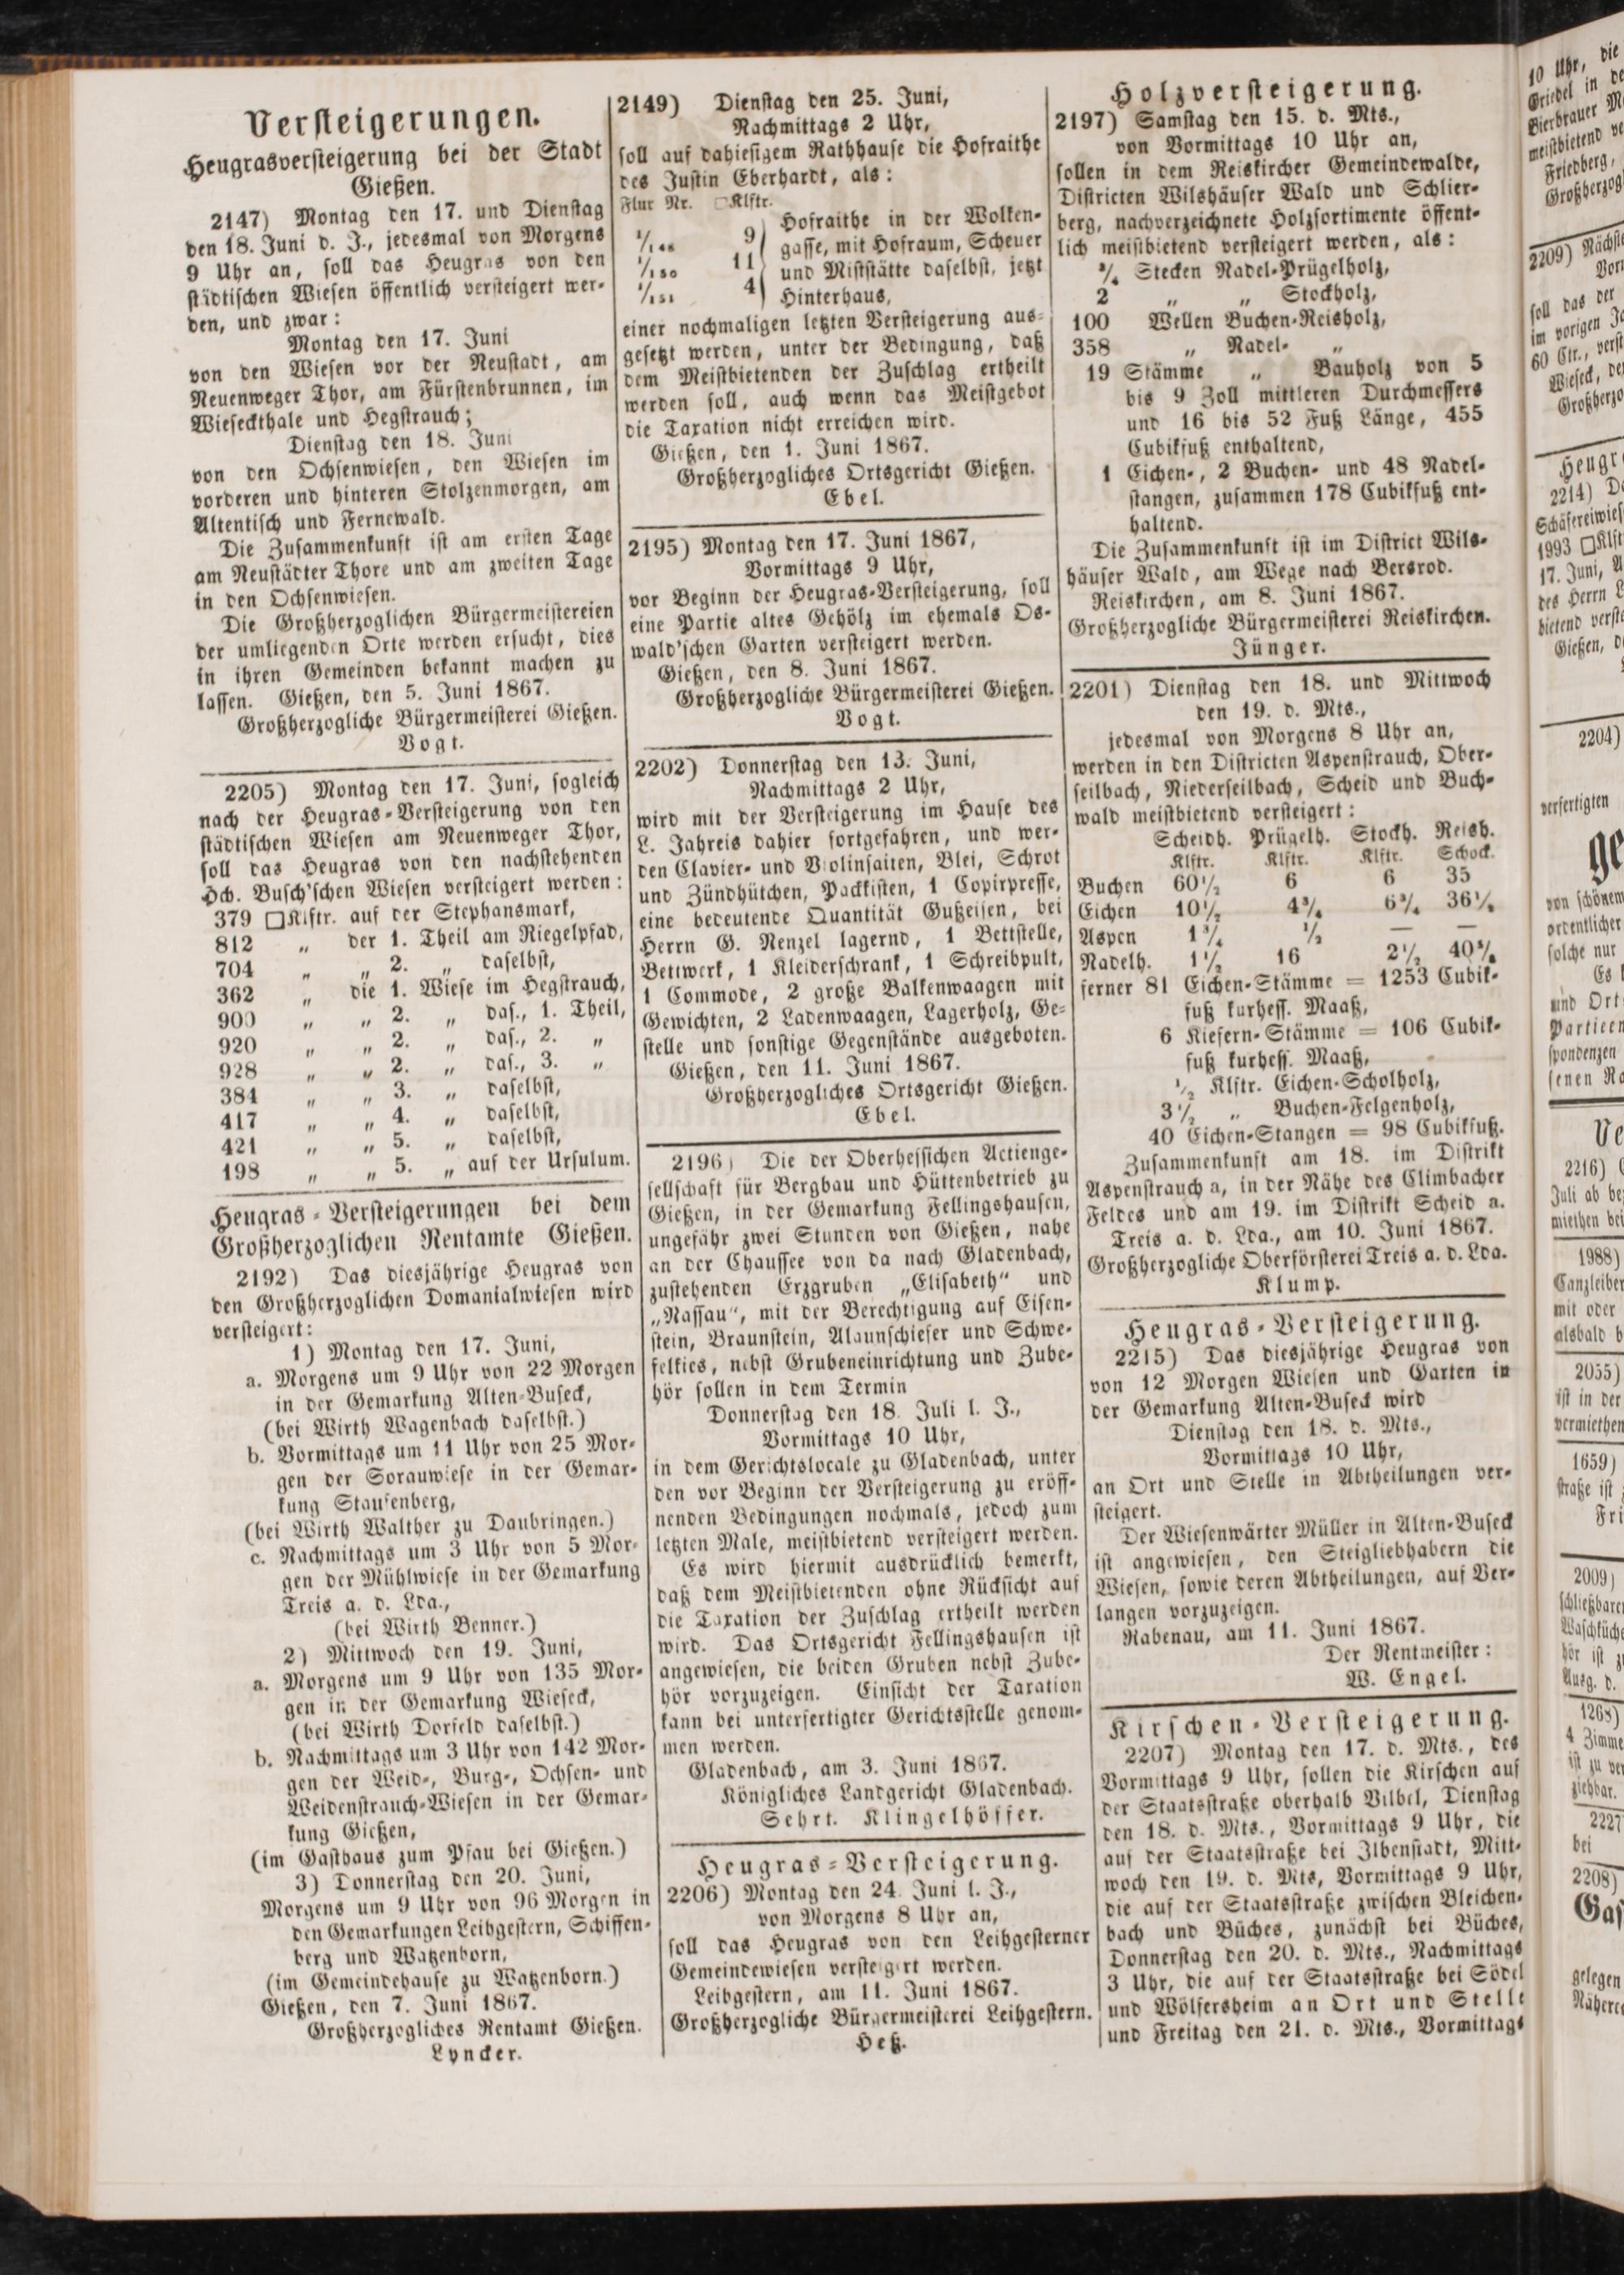 Versteigerungen.
Heugrasversteigerung bei der Stadt
Gießen.
2147) Montag den 17. und Dienstag
den 18. Juni d. J., jedesmal von Morgens
9 Uhr an, soll das Heugras von den
städtischen Wiesen öffentlich versteigert wer-
den, und zwar:
Montag den 17. Juni
von den Wiesen vor der Neustadt, am
Neuenweger Thor, am Fürstenbrunnen, im
Wieseckthale und Hegstrauch;
Dienstag den 18. Juni
von den Ochsenwiesen, den Wiesen im
vorderen und hinteren Stolzenmorgen, am
Altentisch und Fernewald.
Die Zusammenkunft ist am ersten Tage
am Neustädter Thore und am zweiten Tage
in den Ochsenwiesen.
Die Großherzoglichen Bürgermeistereien
der umliegenden Orte werden ersucht, dies
in ihren Gemeinden bekannt machen zu
lassen. Gießen, den 5. Juni 1867.
Großherzogliche Bürgermeisterei Gießen.
Vogt.
2205) Montag den 17. Juni, sogleich
nach der Heugras-Versteigerung von den
städtischen Wiesen am Neuenweger Thor,
soll das Heugras von den nachstehenden
Hch. Busch'schen Wiesen versteigert werden:
379 □Klftr. auf der Stephansmark,
812 „ der 1. Theil am Riegelpfad,
704 „ „ 2. „ daselbst,
362 „ die 1. Wiese im Hegstrauch,
900 „ „ 2. „ das., 1. Theil,
920 „ „ 2. „ das., 2. „
928 „ „ 2. „ das., 3. „
384 „ „ 3. „ daselbst,
417 „ „ 4. „ daselbst,
421 „ „ 5. „ daselbst,
198 „ „ 5. „ auf der Ursulum.
Heugras-Versteigerungen bei dem
Großherzoglichen Rentamte Gießen.
2192) Das diesjährige Heugras von
den Großherzoglichen Domanialwiesen wird
versteigert:
1) Montag den 17. Juni,
a. Morgens um 9 Uhr von 22 Morgen
in der Gemarkung Alten-Buseck,
(bei Wirth Wagenbach daselbst.)
b. Vormittags um 11 Uhr von 25 Mor-
gen der Sorauwiese in der Gemar-
kung Staufenberg,
(bei Wirth Walther zu Daubringen.)
c. Nachmittags um 3 Uhr von 5 Mor-
gen der Mühlwiese in der Gemarkung
Treis a. d. Lda.,
(bei Wirth Benner.)
2) Mittwoch den 19. Juni,
a. Morgens um 9 Uhr von 135 Mor-
gen in der Gemarkung Wieseck,
(bei Wirth Dorfeld daselbst.)
b. Nachmittags um 3 Uhr von 142 Mor-
gen der Weid-, Burg-, Ochsen- und
Weidenstrauch-Wiesen in der Gemar-
kung Gießen,
(im Gasthaus zum Pfau bei Gießen.)
3) Donnerstag den 20. Juni,
Morgens um 9 Uhr von 96 Morgen in
den Gemarkungen Leihgestern, Schiffen-
berg und Watzenborn,
(im Gemeindehause zu Watzenborn.)
Gießen, den 7. Juni 1867.
Großherzogliches Rentamt Gießen.
Lyncker.
2149) Dienstag den 25. Juni,
Nachmittags 2 Uhr,
soll auf dahiesigem Rathhause die Hofraithe
des Justin Eberhardt, als:
Flur Nr. □Klftr.
1/148 9 Hofraithe in der Wolken-
gasse, mit Hofraum, Scheuer
1/150 11 und Miststätte daselbst, jetzt
1/151 4 Hinterhaus,
einer nochmaligen letzten Versteigerung aus-
gesetzt werden, unter der Bedingung, daß
dem Meistbietenden der Zuschlag ertheilt
werden soll, auch wenn das Meistgebot
die Taxation nicht erreichen wird.
Gießen, den 1. Juni 1867.
Großherzogliches Ortsgericht Gießen.
Ebel.
2195) Montag den 17. Juni 1867,
Vormittags 9 Uhr,
vor Beginn der Heugras-Versteigerung, soll
eine Partie altes Gehölz im ehemals Os-
wald'schen Garten versteigert werden.
Gießen, den 8. Juni 1867.
Großherzogliche Bürgermeisterei Gießen.
Vogt.
2202) Donnerstag den 13. Juni,
Nachmittags 2 Uhr,
wird mit der Versteigerung im Hause des
L. Jahreis dahier fortgefahren, und wer-
den Clavier- und Violinsaiten, Blei, Schrot
und Zündhütchen, Packkisten, 1 Copirpresse,
eine bedeutende Quantität Gußeisen, bei
Herrn G. Renzel lagernd, 1 Bettstelle,
Bettwerk, 1 Kleiderschrank, 1 Schreibpult,
1 Commode, 2 große Balkenwaagen mit
Gewichten, 2 Ladenwaagen, Lagerholz, Ge-
stelle und sonstige Gegenstände ausgeboten.
Gießen, den 11. Juni 1867.
Großherzogliches Ortsgericht Gießen.
Ebel.
2196) Die der Oberhessichen Actienge-
sellschaft für Bergbau und Hüttenbetrieb zu
Gießen, in der Gemarkung Fellingshausen,
ungefähr zwei Stunden von Gießen, nahe
an der Chaussee von da nach Gladenbach,
zustehenden Erzgruben „Elisabeth“ und
„Nassau“, mit der Berechtigung auf Eisen-
stein, Braunstein, Alaunschiefer und Schwe-
felkies, nebst Grubeneinrichtung und Zube-
hör sollen in dem Termin
Donnerstag den 18. Juli l. J.,
Vormittags 10 Uhr,
in dem Gerichtslocale zu Gladenbach, unter
den vor Beginn der Versteigerung zu eröff-
nenden Bedingungen nochmals, jedoch zum
letzten Male, meistbietend versteigert werden.
Es wird hiermit ausdrücklich bemerkt,
daß dem Meistbietenden ohne Rücksicht auf
die Taxation der Zuschlag ertheilt werden
wird. Das Ortsgericht Fellingshausen ist
angewiesen, die beiden Gruben nebst Zube-
hör vorzuzeigen. Einsicht der Taxation
kann bei unterfertigter Gerichtsstelle genom-
men werden.
Gladenbach, am 3. Juni 1867.
Königliches Landgericht Gladenbach.
Sehrt. Klingelhöffer.
Heugras-Versteigerung.
2206) Montag den 24. Juni l. J.,
von Morgens 8 Uhr an,
soll das Heugras von den Leihgesterner
Gemeindewiesen versteigert werden.
Leihgestern, am 11. Juni 1867.
Großherzogliche Bürgermeisterei Leihgestern.
Heß.
Holzversteigerung.
2197) Samstag den 15. d. Mts.,
von Vormittags 10 Uhr an,
sollen in dem Reiskircher Gemeindewalde,
Districten Wilshäuser Wald und Schlier-
berg, nachverzeichnete Holzsortimente öffent-
lich meistbietend versteigert werden, als:
3/4 Stecken Nadel-Prügelholz,
2 „ „ Stockholz,
100 Wellen Buchen-Reisholz,
358 „ Nadel- „
19 Stämme „ Bauholz von 5
bis 9 Zoll mittleren Durchmessers
und 16 bis 52 Fuß Länge, 455
Cubikfuß enthaltend,
1 Eichen-, 2 Buchen- und 48 Nadel-
stangen, zusammen 178 Cubikfuß ent-
haltend.
Die Zusammenkunft ist im District Wils-
häuser Wald, am Wege nach Bersrod.
Reiskirchen, am 8. Juni 1867.
Großherzogliche Bürgermeisterei Reiskirchen.
Jünger.
2201) Dienstag den 18. und Mittwoch
den 19. d. Mts.,
jedesmal von Morgens 8 Uhr an,
werden in den Districten Aspenstrauch, Ober-
seilbach, Niederseilbach, Scheid und Buch-
wald meistbietend versteigert:
Scheidh. Prügelh. Stockh. Reish.
Klftr. Klftr. Klftr. Schock.
Buchen 60 1/2 6 6 35
Eichen 10 1/2 4 3/4 6 3/4 36 1/4
Aspen 1 3/4 1/2 — —
Nadelh. 1 1/2 16 2 1/2 40 3/4
ferner 81 Eichen-Stämme = 1253 Cubik-
fuß kurhess. Maaß,
6 Kiefern-Stämme = 106 Cubik-
fuß kurhess. Maaß,
1/2 Klftr. Eichen-Scholholz,
3 1/2 „ Buchen-Felgenholz,
40 Eichen-Stangen = 98 Cubikfuß.
Zusammenkunft am 18. im Distrikt
Aspenstrauch a, in der Nähe des Climbacher
Feldes und am 19. im Distrikt Scheid a.
Treis a. d. Lda., am 10. Juni 1867.
Großherzogliche Oberförsterei Treis a. d. Lda.
Klump.
Heugras-Versteigerung.
2215) Das diesjährige Heugras von
von 12 Morgen Wiesen und Garten in
der Gemarkung Alten-Buseck wird
Dienstag den 18. d. Mts.,
Vormittags 10 Uhr,
an Ort und Stelle in Abtheilungen ver-
steigert.
Der Wiesenwärter Müller in Alten-Buseck
ist angewiesen, den Steigliebhabern die
Wiesen, sowie deren Abtheilungen, auf Ver-
langen vorzuzeigen.
Rabenau, am 11. Juni 1867.
Der Rentmeister:
W. Engel.
Kirschen-Versteigerung.
2207) Montag den 17. d. Mts., des
Vormittags 9 Uhr, sollen die Kirschen auf
der Staatsstraße oberhalb Vilbel, Dienstag
den 18. d. Mts., Vormittags 9 Uhr, die
auf der Staatsstraße bei Ilbenstadt, Mitt-
woch den 19. d. Mts, Vormittags 9 Uhr,
die auf der Staatsstraße zwischen Bleichen-
bach und Büches, zunächst bei Büches,
Donnerstag den 20. d. Mts., Nachmittags
3 Uhr, die auf der Staatsstraße bei Södel
und Wölfersheim an Ort und Stelle
und Freitag den 21. d. Mts., Vormittags
10 Uhr, die
Griedel in
Bierbrauer
meistbietend
Friedberg,
2209)
soll das der
im vorigen
60 Ctr.,
Wieseck,
2214)
1993 □
17. Juni,
des Herrn
bietend
Gießen,
2204)
verfertigten
von schönem
ordentlicher
solche nur
Es
und
2216)
Juli ab
miethen bei
1988)
mit oder
alsbald
2055)
ist in der
vermiethen
1659)
straße ist
2009)
ist zu
Ausg. d.
1268)
ist zu
ziehbar.
2227
bei
2208)
gelegen